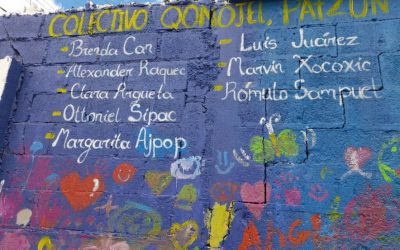 COLECTIVO QONOJEL, PATZÚN
Brenda Can
Alexander Raquec
Clara Argueta
Ottoniel Sipac
Margarita Ajpop
Luis Juárez
Marvin Xocoxic
Rómulo Sampuel